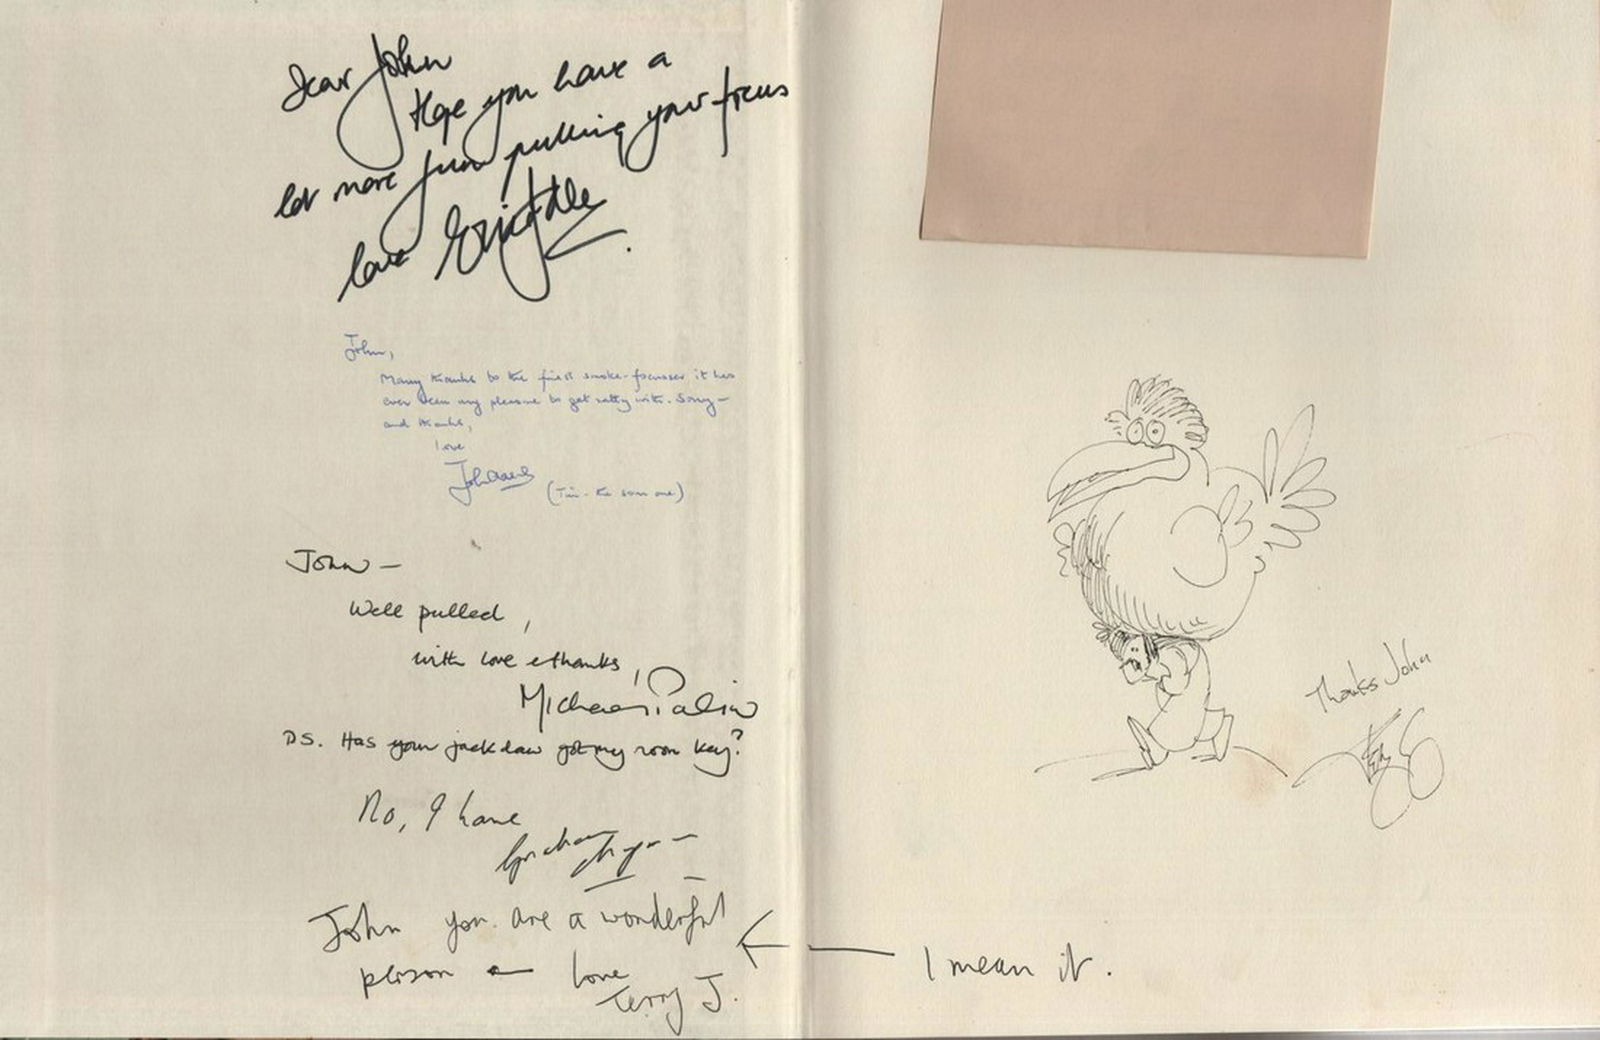 Dear John
Hope you have a
lot more fun pulling your focus
love Eric Idle
John,
Many thanks to the finest smoke-focusser it has
ever been my pleasure to get ratty with. Sorry –
and thanks,
love
John Cleese
(Tim - the son one)
John –
Well pulled,
with love & thanks,
Michael Palin
PS. Has your jackdaw got my room key?
No, I have
Graham Chapman
John you are a wonderful
person – love
Terry J.
I mean it.
Thanks John